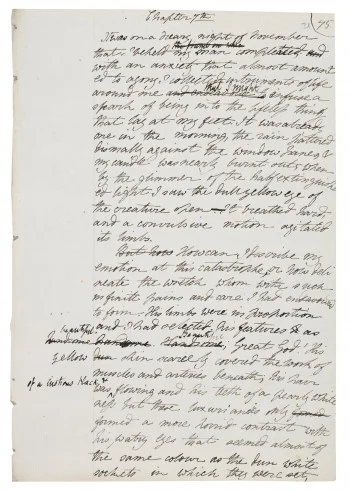 Chapter 7th
75
It was on a dreary night of November
that I beheld the frame on which my man completed and
with an anxiety that almost amount
ed to agony I collected instruments of life
around me that I might infuse a
spark of being into the lifeless thing
that lay at my feet. It was already
one in the morning, the rain pattered
dismally against the window panes &
my candle was nearly burnt out when
by the glimmer of the half extinguish
ed light I saw the dull yellow eye of
the creature open — It breathed hard
and a convulsive motion agitated
its limbs.
But how How can I describe my
emotion at this catastrophe, or how deli
neate the wretch whom with such
infinite pains and care I had endeavoured
to form. His limbs were in proportion
and I had selected his features as
beautiful handsome Handsome. Beautiful; Great God! His
yellow dun skin scarcely covered the work of
muscles and arteries beneath; his hair
of a lustrous black &
was flowing and his teeth of a pearly white
ness but these luxuriancies only
formed a more horrid contrast with
his watry eyes that seemed almost of
the same colour as the dun white
sockets in which they were set,